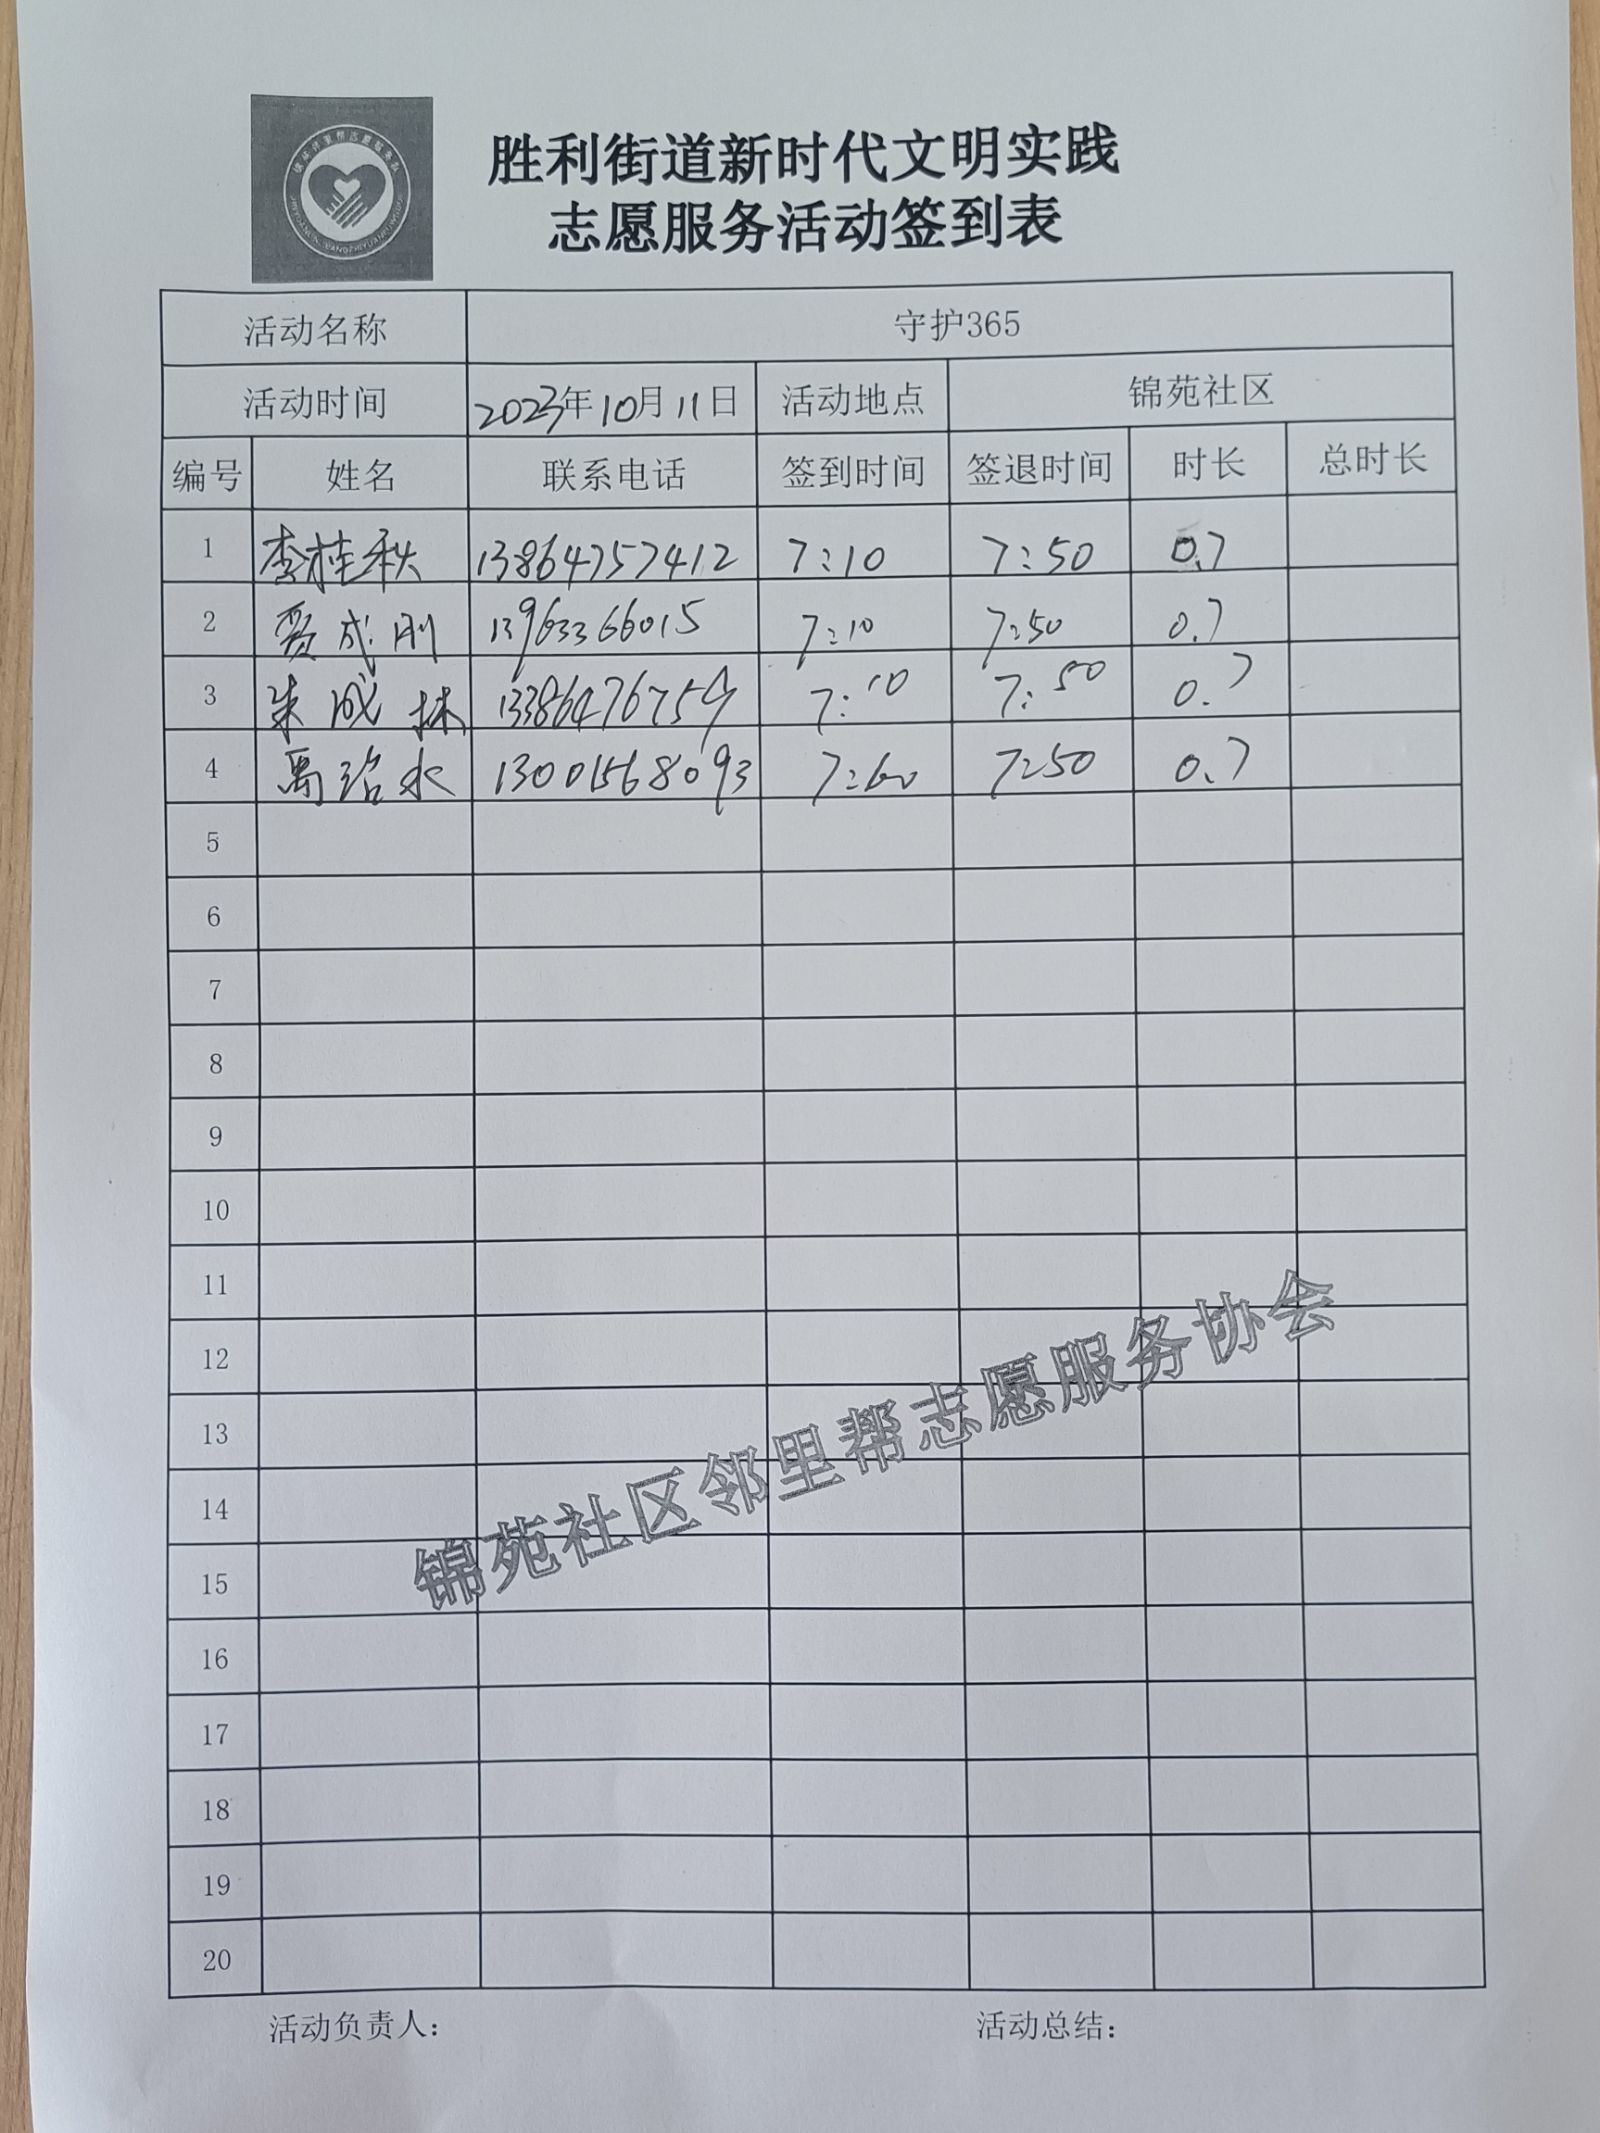 胜利街道新时代文明实践
志愿服务活动签到表
活动名称 守护365
活动时间 2023年10月11日 活动地点 锦苑社区
编号 姓名 联系电话 签到时间 签退时间 时长 总时长
1 李桂秋 13864757412 7:10 7:50 0.7
2 贾成刚 13963366015 7:10 7:50 0.7
3 朱成林 7:10 7:50 0.7
4 禹治水 13001568093 7:50 0.7
5
6
7
8
9
10
11
12
13
14
15
16
17
18
19
20
锦苑社区邻里帮志愿服务协会
活动负责人： 活动总结：